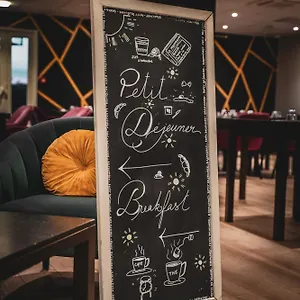 Petit
Déjeuner
Breakfast
CAFÉ
THÉ